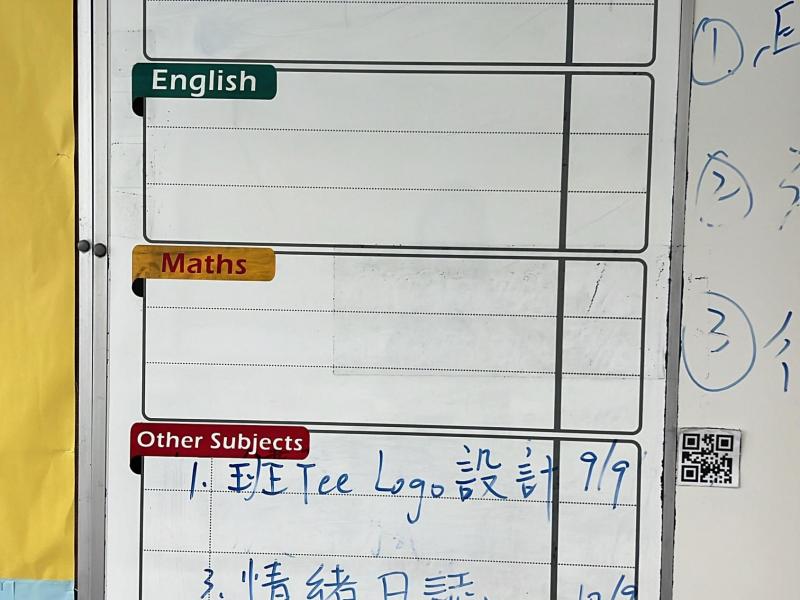 ①
English
②
Maths
③
Other Subjects
1. 班Tee Logo設計 9/9
3. 情緒日誌